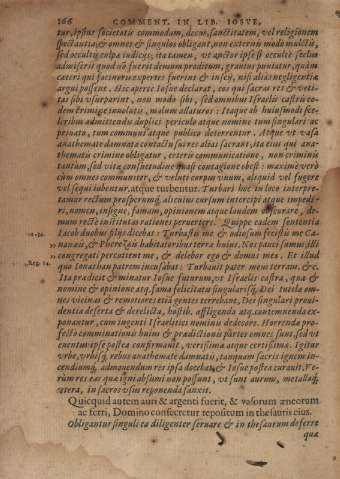 166 COMMENT. IN LIB. IOSVE,
tur, ipsius societatis commodum, decus, sanctitatem, vel religionem
spectantia, & omnes & singulos obligant, non externis modo mulctis,
sed occultis culpæ iudicijs, ita tamen, vt apertè ipse si occultè scelus
admiserit quod est ferè aliorum proditum, grauius puniatur, quàm
cæteri qui facinoris expertes fuerint & inscij, nisi alias negligentiæ
argui possent. Hic aperte Iosue declarat, eos qui sacras res & veti-
tas sibi vsurparint, non modo sibi, sed omnibus Israelis castris eo-
dem crimine inuolutis, malum allaturos: Itaque ab huiusmodi sce-
leribus admittendis duplici periculo atque nomine tum singulari ac
priuato, tum communi atque publico deterrentur. Atque vt vasa
anathemate damnata contactu suo res alias sacrant, ita eius qui ana-
thematis crimine obligatur, cæteris communicatione, non criminis
tantùm, sed vitæ consuetudine quasi contagione obest: maximè verò
cùm omnes communiter, & velut corpus vnum, aliquid vel fugere
vel sequi iubentur, atque turbentur. Turbari hoc in loco interpre-
tamur rectum prosperumq́; alicuius cursum intercipi atque impedi-
ri, nomen, insigne, famam, opinionem atque laudem obscurare, de-
mum rectè instituta rerum peruertere. Quippe eadem sententia
Iacob duobus filijs dicebat: Turbastis me & odiosum fecistis me Ca-
nanæis, & Pherezæis habitatoribus terræ huius. Nos pauci sumus, illi
congregati percutient me, & delebor ego & domus mea. Et illud
quo Ionathan patrem incusabat: Turbauit pater meus terram, &c.
Ita prædicit & minatur Iosue futurum, vt Israelis castra, quæ &
nomine & opinione atq́; fama felicitatis singularisq́; Dei tutela om-
nes vicinas & remotiores etiā gentes terrebant, Dei singulari proui-
dentia deserta & derelicta, hostib. affligenda atq́; contemnenda ex-
ponantur, cum ingenti Israelitici nominis dedecore. Horrenda pro-
fectò comminationis huius & prædictionis partes omnes sunt, sed vt
euentus ipse postea confirmauit, verissima atque certissima. Igitur
vrbe, vrbisq́; rebus anathemate damnatis, tanquam sacris ignem in-
cendiumq́; admouendum res ipsa docebat, & Iosue postea curauit. Ve-
rùm res eas quæ igni absumi non possunt, vt sunt aurum, metallaq́;
cætera, in sacros vsus reponenda sanxit.
Quicquid autem auri & argenti fuerit, & vasorum æneorum
ac ferri, Domino consecretur repositum in thesauris eius.
Obligantur singuli ea diligenter seruare & in thesaurum deferre
quæ